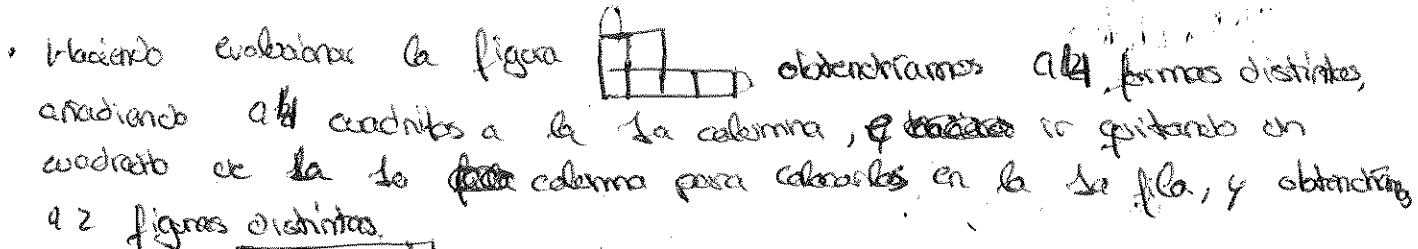 · Haciendo evolucionar la figura obtendríamos formas distintas,
añadiendo cuadritos a la 1a columna, ir quitando un
cuadradito de la 1a columna para colocarlos en la 1a fila, y obtendríamos
figuras distintas.